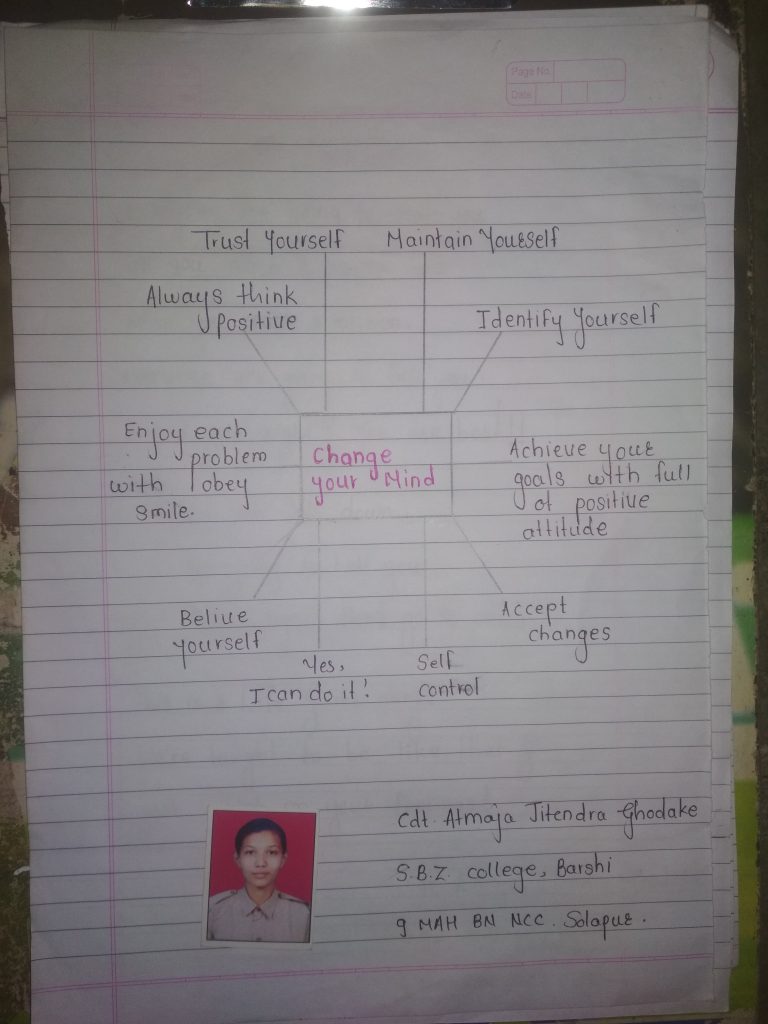 Page No.
Date
Trust Yourself
Maintain Yourself
Always think
positive
Identify Yourself
Enjoy each
problem
with obey
smile.
Change
your Mind
Achieve your
goals with full
of positive
attitude
Belive
yourself
Accept
changes
Yes,
I can do it!
Self
control
Cdt. Atmaja Jitendra Ghodake
S.B.Z college, Barshi
9 MAH BN NCC. Solapur.